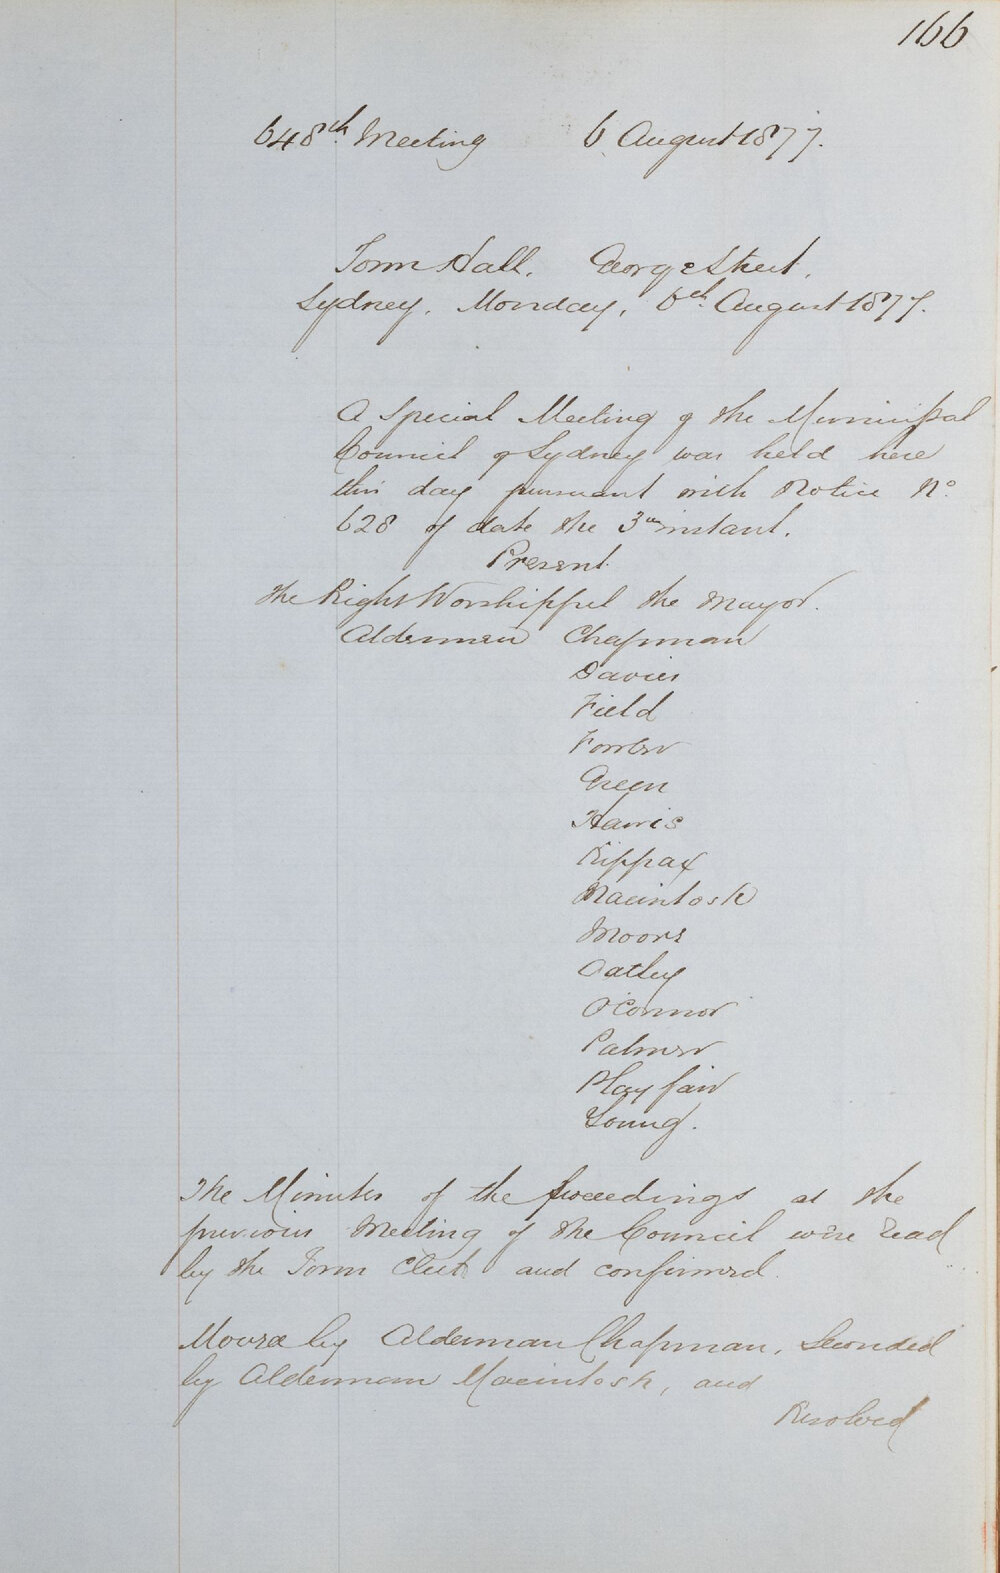 166
648th Meeting 6 August 1877.
Town Hall. George Street.
Sydney, Monday, 6th August 1877.
A Special Meeting of the Municipal
Council of Sydney was held here
this day pursuant with Notice No
628 of date the 3rd instant.
Present
The Right Worshipful the Mayor.
Aldermen Chapman
Davies
Field
Fowler
Green
Harris
Kippax
Macintosh
Moore
Oatley
O'Connor
Palmer
Playfair
Young.
The Minutes of the proceedings at the
previous Meeting of the Council were read
by the Town Clerk and confirmed.
Moved by Alderman Chapman, Seconded
by Alderman Macintosh, and
Resolved